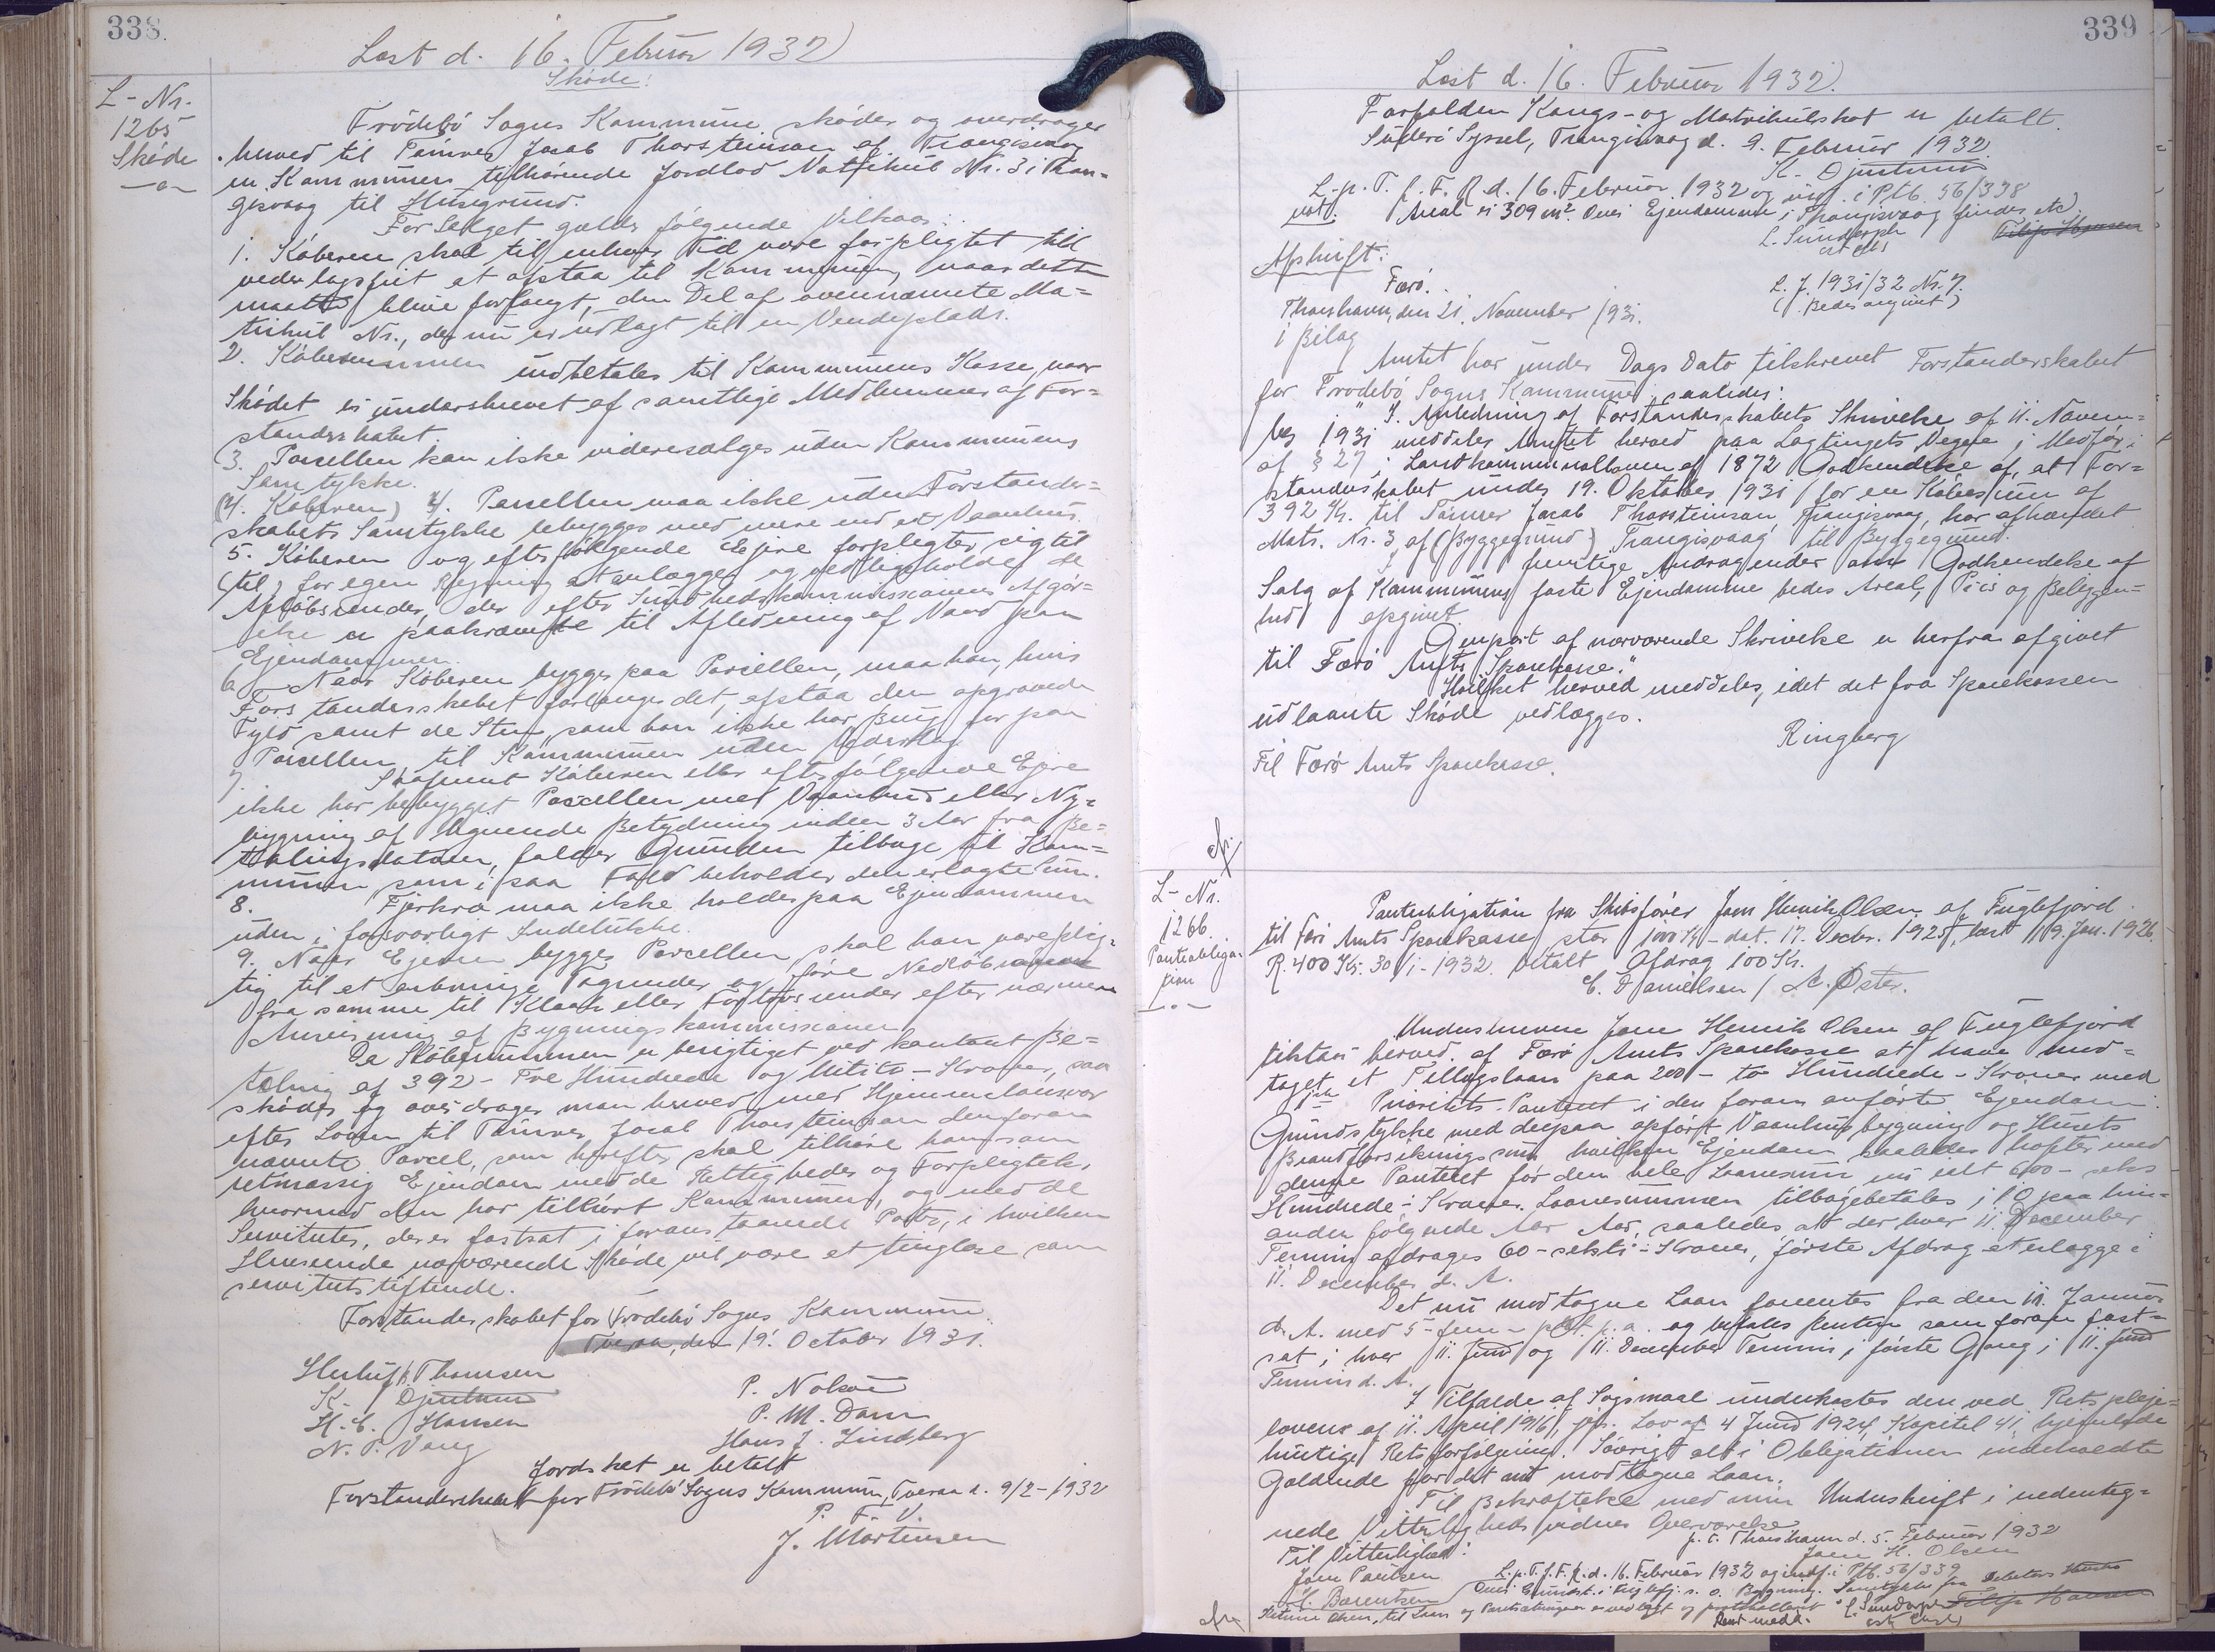 338.
Læst d. 16. Februar 1932
Skøde:
L-Nr.
1265
Skøde
Frodebø Sogns Kommune skøder og overdrager
herved til Tømrer Jacob Thorsteinson af Trangisvaag
en Kommunen tilhørende Jordlod Matrikul Nr. 3 i Tran=
gisvaag til Husegrund.
For Salget gælder følgende Vilkaar:
1. Køberen skal til enhver Tid være forpligtet till
vederlagsfrit at afstaa til Kommunen, naar dette
maatte blive forlangt, den Del af ovennævnte Ma=
trikul Nr., der nu er udlagt til en Vendeplads.
2. Købesummen indbetales til Kommunens Kasse, naar
Skødet er underskrevet af samtlige Medlemmer af For=
standerskabet.
3. Parcellen kan ikke videresælges uden Kommunens
Samtykke.
(4. Køberen) 4. Parcellen maa ikke uden Forstander=
skabets Samtykke bebygges med mere end et Vaanhus.
5. Køberen og efterfølgende Ejere forpligter sig til
(til) for egen Regning at anlægge og vedligeholde de
Afløbsrender, der efter Sundhedskommissionens Afgør=
else er paakrævede til Afledning af Vand paa
Ejendommen.
6. Naar Køberen bygger paa Parcellen, maa han, hvis
Forstanderskabet forlanger det, afstaa den opgravede
Fyld samt de Sten, som han ikke har Brug for paa
Parcellen til Kommunen uden Vederlag.
7. Saafremt Køberen eller efterfølgende Ejere
ikke har bebygget Parcellen med Vaanhus eller Ny=
bygning af lignende Betydning inden 3 Aar fra Be=
talingsdatoen, falder Grunden tilbage til Kom=
munen, som i saa Fald beholder den erlagte Sum.
8. Fjerkræ maa ikke holdes paa Ejendommen
uden i forsvarligt Indelukke.
9. Naar Ejeren bygger Parcellen skal han være plig=
tig til at anbringe Tagrender og føre Nedløb
fra samme til Kloak eller Fortovsrender efter nærmere
Anvisning af Bygningskommissionen.
Da Købesummen er berigtiget ved kontant Be=
taling af 392- Tre Hundrede og Nitito - Kroner, saa
skødes og overdrages man herved med Hjemmelansvar
efter Loven til Tømrer Jacob Thorsteinson den foran
nævnte Parcel, som herefter skal tilhøre ham som
retmæssig Ejendom med de Rettigheder og Forpligtelser
hvormed den har tilhørt Kommunen, og med de
Servituter, der er fastsat i foranstaaende Poster, i hvilken
Henseende nærværende Skøde vil være at tinglæse som
servitutstiftende.
Forstanderskabet for Frodebø Sogns Kommune
Tveraa, den 19. October 1931.
Herluf Thomsen
K. Djurhuus
H. C. Hansen
N. P. Vang
P. Nolsøe
P. M. Dam
Hans J. Lindberg
Jordskat er betalt
Forstanderskabet for Frodebø Sogns Kommune, Tveraa d. 9/2-1932
P. F. V.
J. Mortensen
339
Læst d. 16. Februar 1932.
Forfalden Kongs- og Matrikulskat er betalt.
Suderø Syssel, Trangisvaag d. 9. Februar 1932
K. Djurhuus
L. p. T. f. F. R. d. 16. Februar 1932 og indf. i Ptb. 56/338
not. Areal er 309 m². Over Ejendomme i Trangisvaag findes etc.
L. Sundorph
cst des
Filip Hansen
Afskrift:
Færø.
L. J. 1931/32 Nr. 7.
(Bedes angivet)
Thorshavn, den 21. November 1931.
1 Bilag
Amtet har under Dags Dato tilskrevet Forstanderskabet
for Frodebø Sogns Kommune saaledes:
"I Anledning af Forstanderskabets Skrivelse af 11. Novem=
ber 1931 meddeler Amtet herved paa Lagtingets Vegne, i Medfør
af § 27 i Landkommunalloven af 1872 Godkendelse af, at For=
standerskabet under 19. Oktober 1931 for en Købesum af
392 Kr. til Tømrer Jacob Thorsteinson, Trangisvaag, har afhændet
Matr. Nr. 3 af (Byggegrund) Trangisvaag til Byggegrund.
I fremtige Andragender om Godkendelse af
Salg af Kommunens faste Ejendomme bedes Areal, Pris og Beliggen=
hed opgivet.
Genpart af nærværende Skrivelse er herfra afgivet
til Færø Amts Sparekasse."
Hvilket herved meddeles, idet det fra Sparekassen
udlaante Skøde vedlægges.
Ringberg
Til Færø Amts Sparekasse.
L-Nr.
1266.
Panteobliga-
tion
Panteobligation fra Skibsfører Joen Henrik Olsen af Fuglefjord
til Færø Amts Sparekasse stor 1000 Kr - dat. 17. Decbr. 1925, læst 19. Jan. 1926.
R. 400 Kr. 30/1-1932 betalt Afdrag 100 Kr.
C. Danielsen / A. Øster.
Underskrevne Joen Henrik Olsen af Fuglefjord
tilstaar herved af Færø Amts Sparekasse at have mod=
taget et Tillægslaan paa 200 - to Hundrede - Kroner med
1ste Prioritets Panteret i den foran anførte Ejendom:
Grundstykke med derpaa opført Vaanhusbygning og Husets
Brandforsikringssum hvilken Ejendom saaledes hæfter med
denne Panteret for den hele Laanesum nu ialt 600 - seks
Hundrede - Kroner. Laanesummen tilbagebetales i 10 paa hin=
anden følgende Aar Aar, saaledes at der hver 11. December
Termin afdrages 60 - seksti - Kroner, første Afdrag at erlægge i
11. December d. A.
Det nu modtagne Laan forrentes fra den 11. Januar
d. A. med 5 - fem - pCt. p. a. og betales Renten som foran fast=
sat i hver 11. Juni og 11. December Termin, første Gang i 11. Juni
Termin d. A.
I Tilfælde af Søgsmaal underkastes den ved Retspleje=
lovens af 11. April 1916, jfr. Lov af 4 Juni 1924, Kapitel 41, hjemlede
hurtige Retsforfølgning. Iøvrigt alt i Obligationen indeholdte
Gældende for det nu modtagne Laan.
Til Bekræftelse med min Underskrift i nedenteg=
nede Vitterlighedsvidners Overværelse
p. t. Thorshavn d. 5. Februar 1932
Joen H. Olsen
Til Vitterlighed:
Joen Poulsen
H. Barentsen
L. p. T. f. F. R. d. 16. Februar 1932 og indf. i Ptb. 56/339
Over Grundst. i Fuglefj. s. o. Bygning. Samtykke fra Debitors Hustru
Olsen, til Laan og Pantsætningen er vedlagt og
L. Sundorph
Filip Hansen